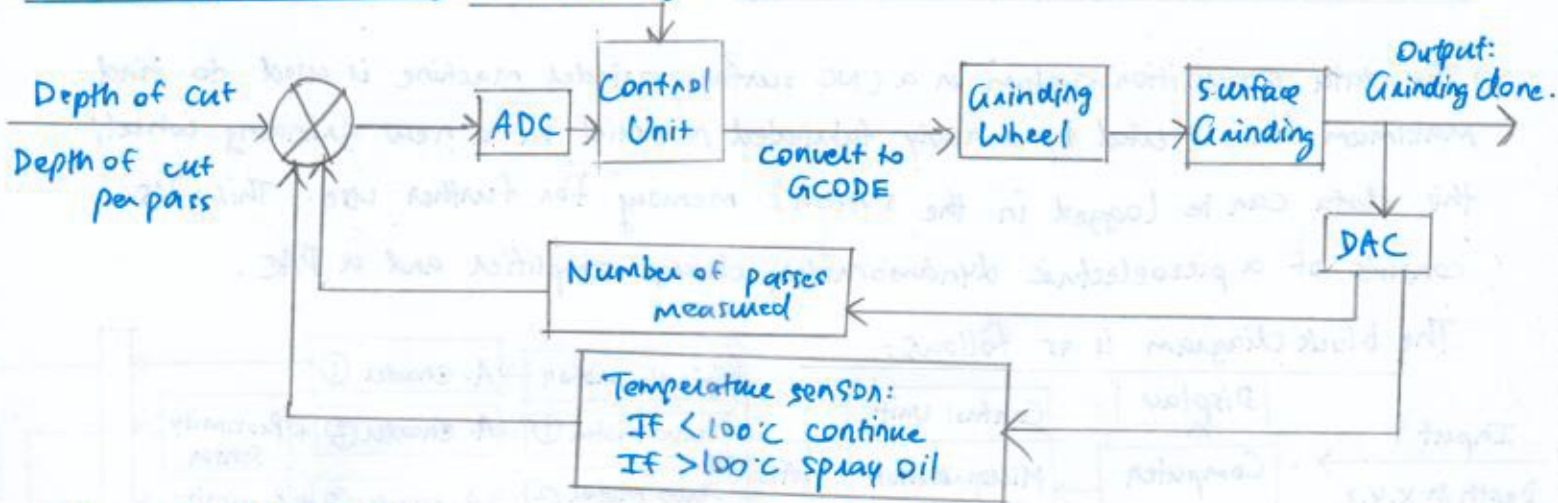 Depth of cut
Depth of cut
per pass
ADC
Control
Unit
Convert to
GCODE
Grinding
Wheel
Surface
Grinding
Output:
Grinding done.
DAC
Number of passes
measured
Temperature sensor:
If < 100°C continue
If > 100°C spray oil